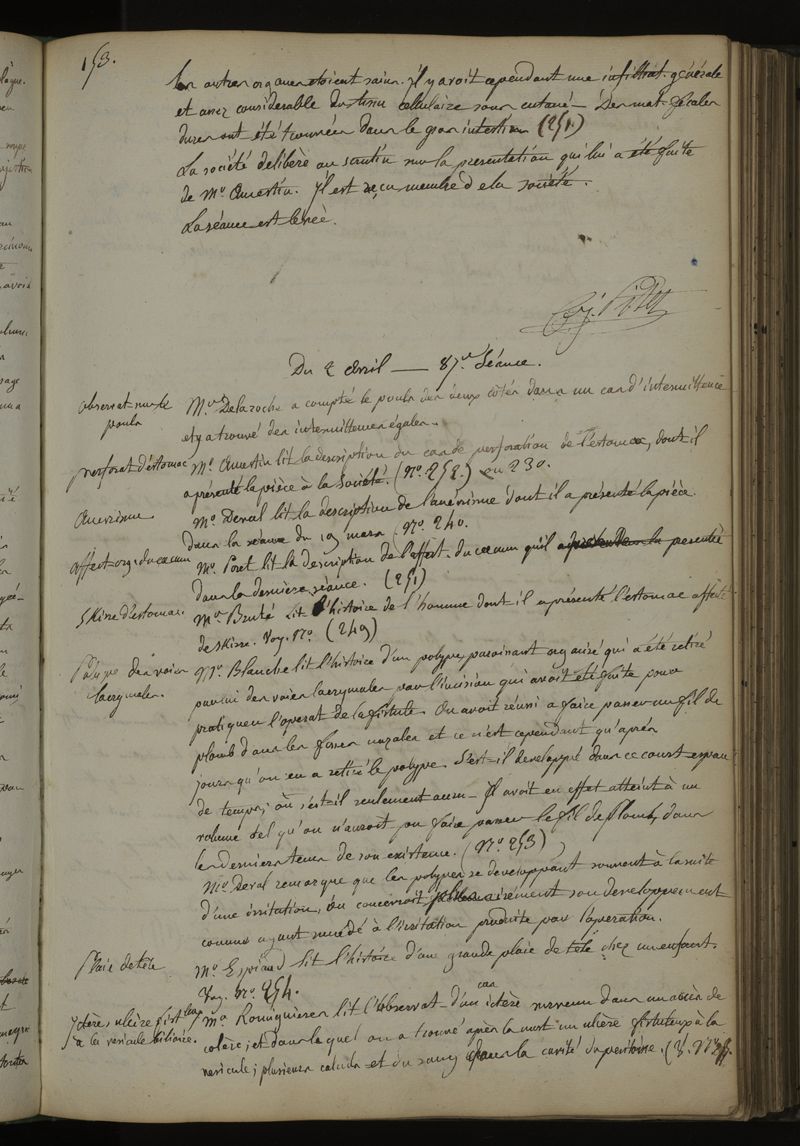 153.
Les autres organes etoient sains. Il y avoit cependant une infiltrat. générale
et assez considerable du tissu cellulaire sous cutané — Des mat. fécales
dures ont été trouvées dans le gros intestin (251)
La société delibère au scrutin sur la presentation qui lui a été faite
de Mr. Amestin. Il est reçu membre de la société.
La séance est levée.
Du 2 avril — 87e. Séance.
Observat. sur le
pouls
Mr. Delaroche a compté le pouls des deux côtés dans un cas d'intermittence
et y a trouvé des intermittences égales.
perforat. d'estomac
Mr. Amestin lit la description du cas de perforation de l'estomac, dont il
a présenté la pièce à la Société. (No. 252) ou 230.
Anevrisme
Mr. Deval lit la description de l'anévrisme dont il a présenté la pièce
dans la séance du 19 mars (No. 240.
affect. org. du cœcum
Mr. Poret lit la description de l'affect. du cœcum qu'il a presentée
dans la dernière séance. (251)
Skirre d'estomac.
Mr. Bruté lit l'histoire de l'homme dont il a présenté l'estomac affecté
de skirre. Voy. No. (249)
Polype des voies
lacrymales.
Mr. Blanche lit l'histoire d'un polype paroissant organisé qui a été retiré
parmi des voies lacrymales par l'incision qui avoit été faite pour
pratiquer l'operat. de la fistule. On avoit réussi a faire passer un fil de
plomb dans les fosses nazales et ce n'est cependant qu'après
jours qu'on en a retiré le polype. S'est-il developpé dans ce court espace
de temps, ou s'est-il seulement accru — Il avoit en effet atteint à un
volume tel qu'on n'auroit pu faire passer le fil de plomb, dans
les derniers tems de son existence. (No. 253)
Mr. Deval remarque que les polypes se developpant souvent à la suite
d'une irritation, on concevroit aisément son developpement
comme ayant succedé à l'irritation produite par l'operation.
Plaie de tête
Mr. Espiaud lit l'histoire d'une grande plaie de tête chez un enfant.
Voy. No. 254.
Ictère, ulcère fistuleux
a la vesicule biliaire.
Mr. Rouquieres lit l'observat. d'un cas ictère survenu dans un accès de
colère; et dans lequel on a trouvé après la mort un ulcère fistuleux à la
vesicule; plusieurs calculs et du sang dans la cavité du peritoine. (V. No. 255.